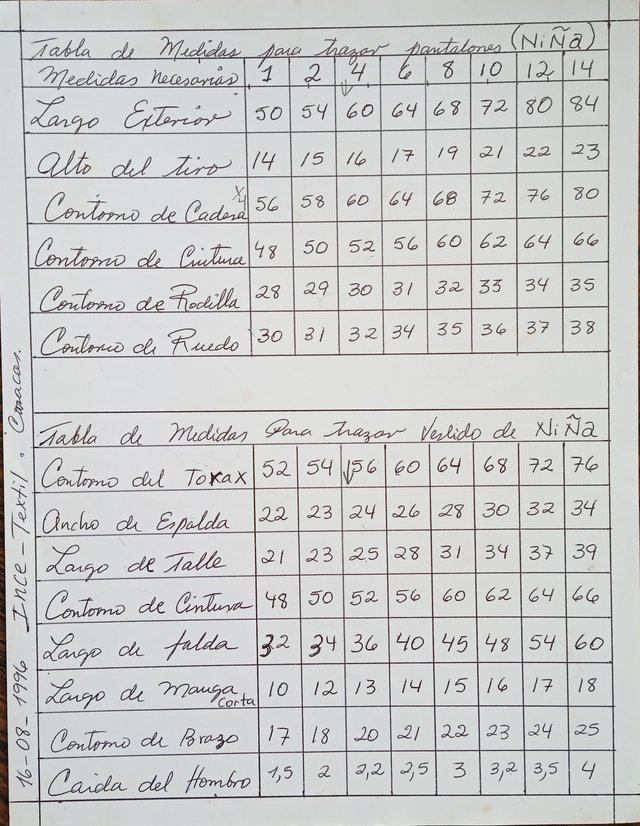 Tabla de Medidas para trazar pantalones (NiÑa)
Medidas Necesarias 1 2 4 6 8 10 12 14
Largo Exterior 50 54 60 64 68 72 80 84
Alto del tiro 14 15 16 17 19 21 22 23
Contorno de Cadera 56 58 60 64 68 72 76 80
Contorno de Cintura 48 50 52 56 60 62 64 66
Contorno de Rodilla 28 29 30 31 32 33 34 35
Contorno de Ruedo 30 31 32 34 35 36 37 38
Tabla de Medidas Para trazar Vestido de NiÑa
Contorno del Torax 52 54 56 60 64 68 72 76
Ancho de Espalda 22 23 24 26 28 30 32 34
Largo de Talle 21 23 25 28 31 34 37 39
Contorno de Cintura 48 50 52 56 60 62 64 66
Largo de falda 32 34 36 40 45 48 54 60
Largo de Manga Corta 10 12 13 14 15 16 17 18
Contorno de Brazo 17 18 20 21 22 23 24 25
Caida del Hombro 1,5 2 2,2 2,5 3 3,2 3,5 4
16-08-1996 Ince-Textil. Caracas.